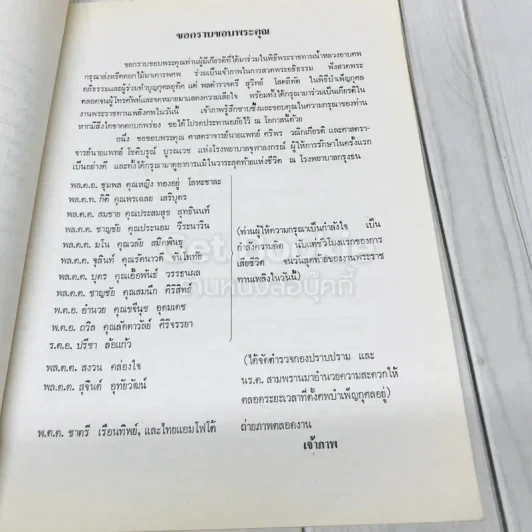 ขอกราบขอบพระคุณ
ขอกราบขอบพระคุณท่านผู้มีเกียรติที่ได้มาร่วมในพิธีพระราชทานน้ำหลวงอาบศพ
กรุณาส่งหรีดดอกไม้มาเคารพศพ ร่วมเป็นเจ้าภาพในการสวดพระอภิธรรม ฟังสวดพระ
อภิธรรมและผู้ร่วมทำบุญกุศลอุทิศ แด่ พลตำรวจตรี สุวิทย์ โสตถิทัต ในพิธีบำเพ็ญกุศล
ตลอดจนผู้โทรศัพท์และจดหมายมาแสดงความเสียใจ พร้อมทั้งได้กรุณามาร่วมเป็นเกียรติใน
งานพระราชทานเพลิงศพในวันนี้ เจ้าภาพรู้สึกซาบซึ้งและขอบคุณในความกรุณาของท่าน
หากมีสิ่งใดขาดตกบกพร่อง ขอได้โปรดประทานอภัยไว้ ณ โอกาสนี้ด้วย
อนึ่ง ขอขอบพระคุณ ศาสตราจารย์นายแพทย์ ศรีพร วณิกเกียรติ และศาสตรา-
จารย์นายแพทย์ โชติบูรณ์ บูรณเวช แห่งโรงพยาบาลจุฬาลงกรณ์ ผู้ให้การรักษาในครั้งแรก
เป็นอย่างดี และทั้งได้กรุณามาดูอาการแม้ในวาระสุดท้ายแห่งชีวิต ณ โรงพยาบาลกรุงธน
พล.ต.อ. ชุมพล คุณหญิง ทองอยู่ โลหะชาละ
พล.ต.ท. กิตติ คุณพรเฉลย เสริบุตร
พล.ต.ต. สมชาย คุณประสมสุข สุทธินนท์
พล.ต.ต. ชาญชัย คุณประนอม วีระนาวิน
พล.ต.ต. มโน คุณวลัย สมิตพันธุ์
พล.ต.ต. จุลินท์ คุณรัตนาวดี จันโททัย
พล.ต.ต. บุตร คุณเอื้อพันธ์ วรรธนผล
พล.ต.ต. ชาญชัย คุณสมนึก ศิริสิทธิ์
พ.ต.อ. อำนวย คุณขจีนุช อุดมเดช
พ.ต.อ. ถวิล คุณลัดดาวัลย์ ศิริจรรยา
ร.ต.อ. ปรีชา ล้อแก้ว
(ท่านผู้ให้ความกรุณาเป็นกำลังใจ เป็น
กำลังความคิด นับแต่ชั่วโมงแรกของการ
เสียชีวิต จนวันสุดท้ายของงานพระราช
ทานเพลิงในวันนี้)
พล.ต.ต. สงวน คล่องใจ
พล.ต.ต. สุจินต์ อุทัยวัฒน์
(ได้จัดตำรวจกองปราบปราม และ
นร.ต. สามพรานมาอำนวยความสะดวกให้
ตลอดระยะเวลาที่ตั้งศพบำเพ็ญกุศลอยู่)
พ.ต.ต. ชาตรี เรือนทิพย์, และไทยแอมโฟโต้ ถ่ายภาพตลอดงาน
เจ้าภาพ
ร้านหนังสือบุ๊คกี้